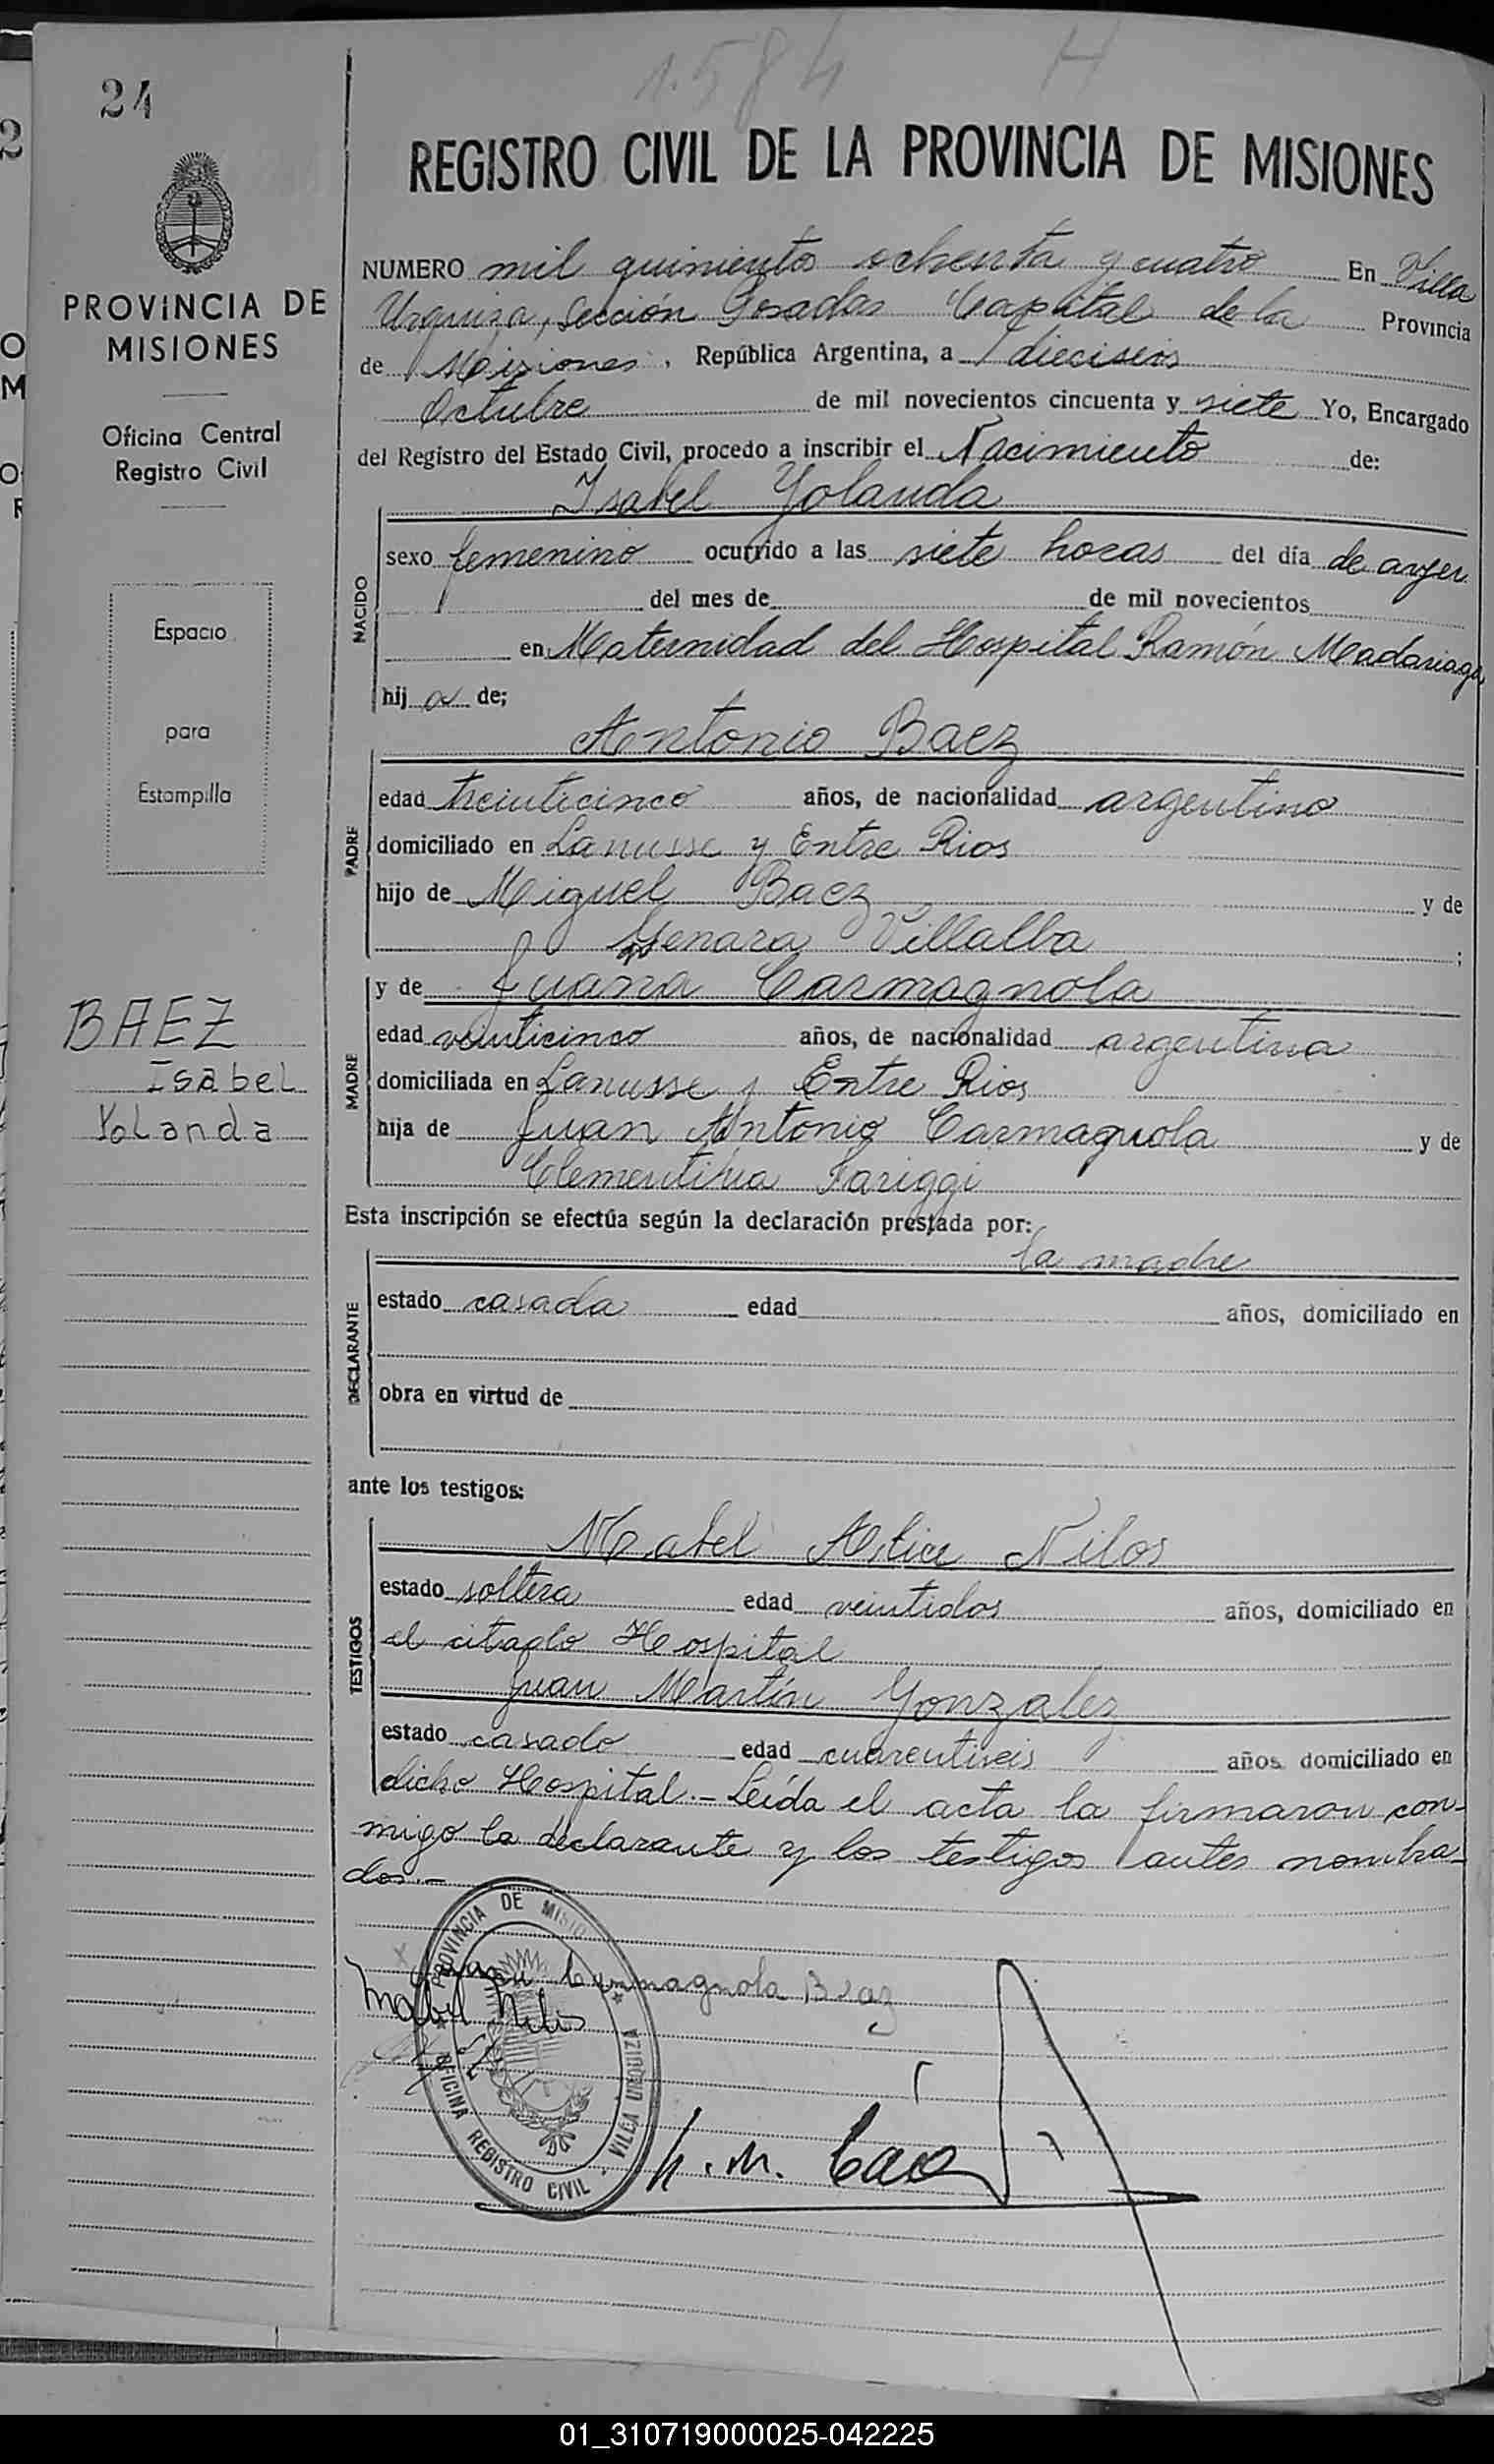 1.584 H
24
REGISTRO CIVIL DE LA PROVINCIA DE MISIONES
PROVINCIA DE
MISIONES
Oficina Central
Registro Civil
Espacio
para
Estampilla
BAEZ
Isabel
Yolanda
NUMERO mil quinientos ochenta y cuatro En Villa
Urquiza, Sección Posadas Capital de la Provincia
de Misiones, República Argentina, a dieciseis
Octubre de mil novecientos cincuenta y siete Yo, Encargado
del Registro del Estado Civil, procedo a inscribir el Nacimiento de:
Isabel Yolanda
NACIDO
sexo femenino ocurrido a las siete horas del día de ayer
del mes de de mil novecientos
en Maternidad del Hospital Ramón Madariaga
hij a de;
Antonio Baez
PADRE
edad treinticinco años, de nacionalidad argentino
domiciliado en Lanusse y Entre Rios
hijo de Miguel Baez y de
Genara Villalba ;
y de Juana Carmagnola
MADRE
edad veinticinco años, de nacionalidad argentina
domiciliada en Lanusse y Entre Rios
hija de Juan Antonio Carmagnola y de
Clementina Fariggi
Esta inscripción se efectúa según la declaración prestada por:
la madre
DECLARANTE
estado casada edad años, domiciliado en
obra en virtud de
ante los testigos:
Mabel Alice Nilos
TESTIGOS
estado soltera edad veintidos años, domiciliado en
el citado Hospital
Juan Martín Gonzalez
estado casado edad cuarentiseis años domiciliado en
dicho Hospital.- Leída el acta la firmaron con-
migo la declarante y los testigos antes nombra-
dos.-
PROVINCIA DE MISIO
OFICINA REGISTRO CIVIL - VILLA URQUIZA
Juana Carmagnola Baez
Mabel Nilos
01_310719000025-042225